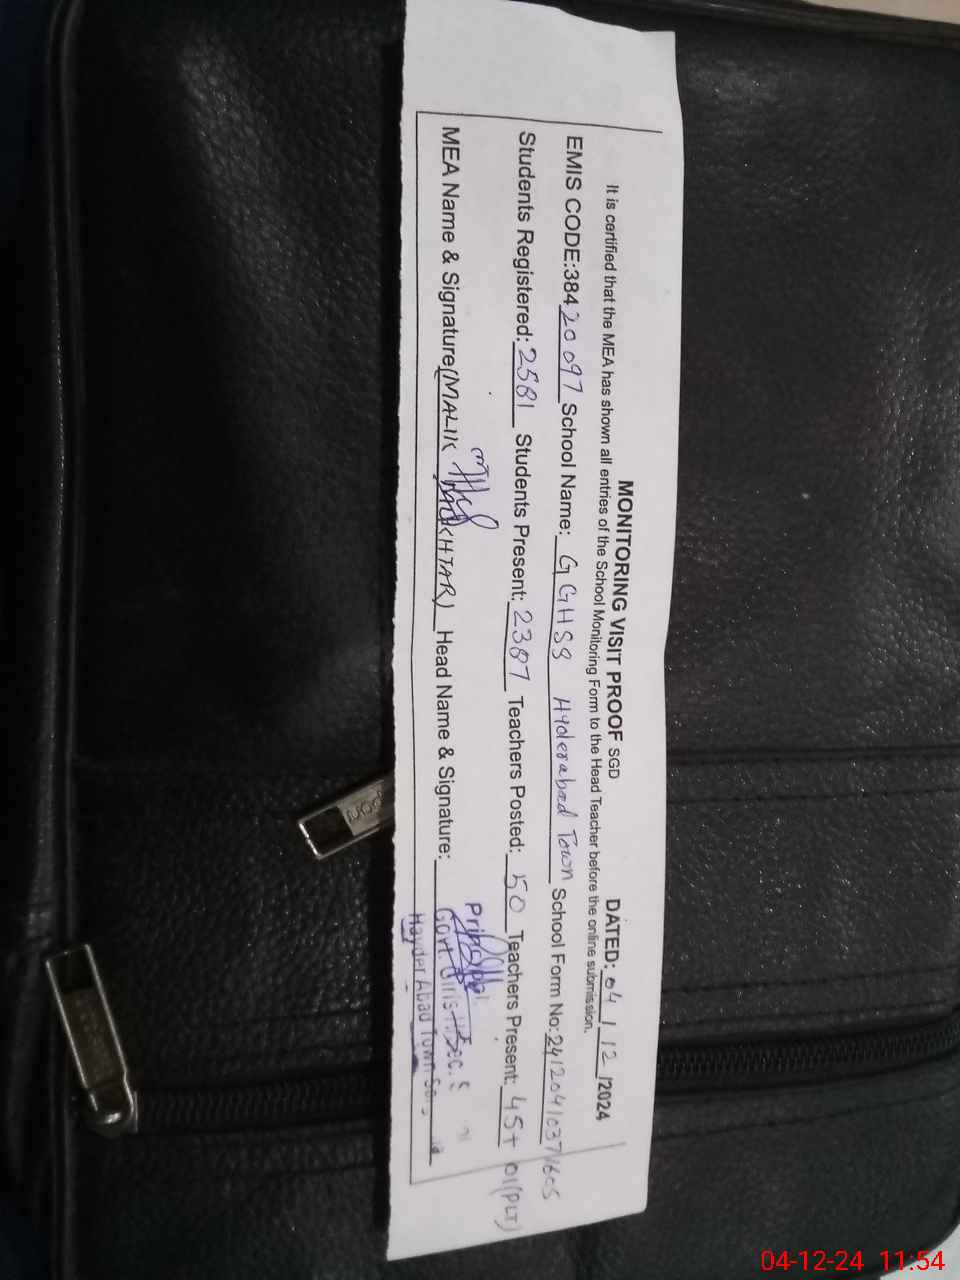 MONITORING VISIT PROOF SGD DATED: 04 / 12 /2024
It is certified that the MEA has shown all entries of the School Monitoring Form to the Head Teacher before the online submission.
EMIS CODE:38420097 School Name: GGHSS Hyderabad Town School Form No:
Students Registered: 2581 Students Present: 2387 Teachers Posted: 50 Teachers Present: 45+ 01(PLT)
MEA Name & Signature(MALIK MUKHTAR) Head Name & Signature:
Principal
Govt. Girls H.Sec. S
Hayder Abad Town
04-12-24 11:54